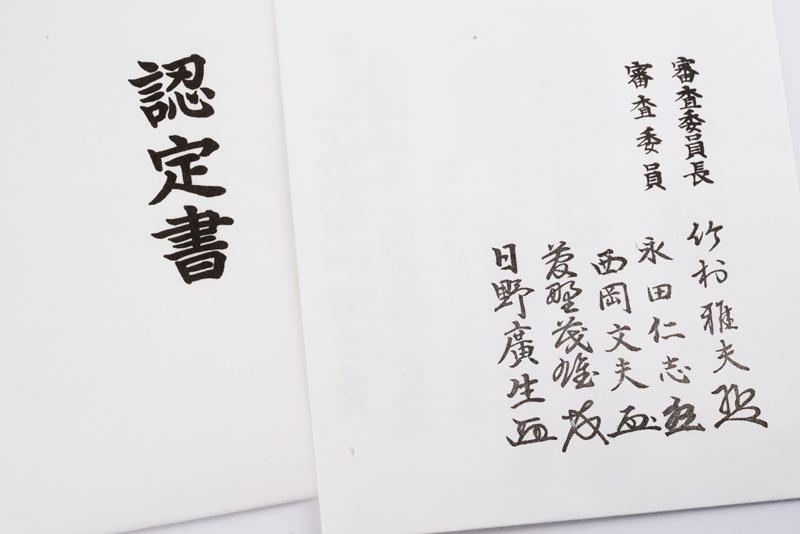 認定書
審査委員長
審査委員
竹村雅夫
永田仁志
西岡文夫
菱野茂雄
日野廣生